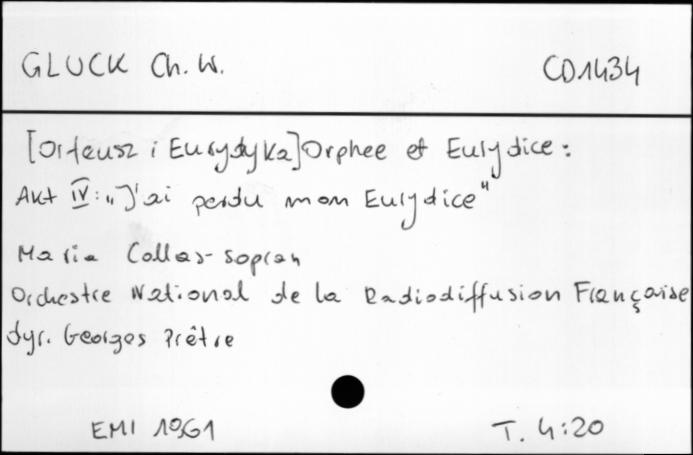 GLUCK Ch. W.
CD1434
[Orfeusz i Eurydyka] Orphee et Eurydice:
Akt IV: „J'ai perdu mon Eurydice"
Maria Callas - sopran
Orchestre National de la Radiodiffusion Française
dyr. Georges Prêtre
EMI 1961
T. 4:20